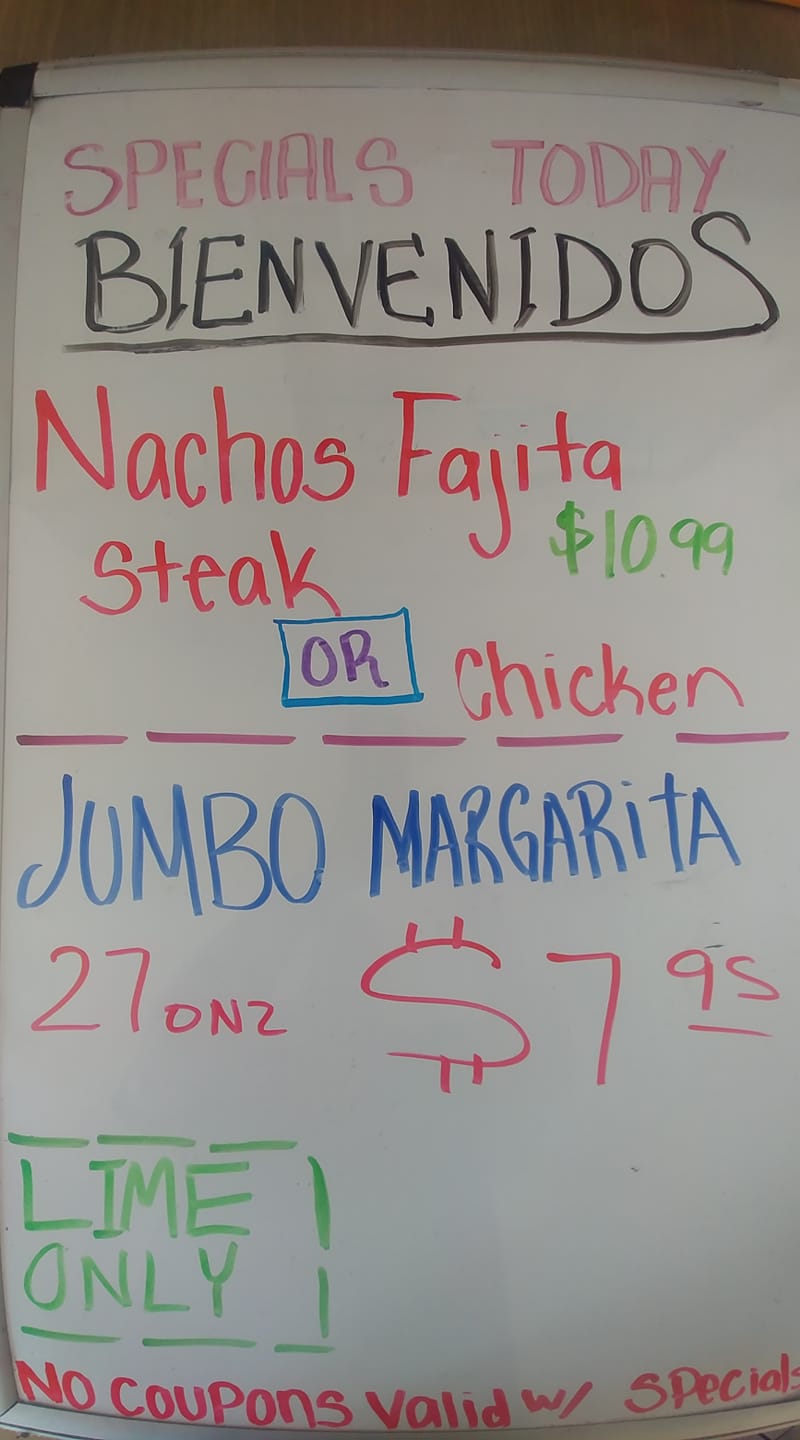 SPECIALS TODAY
BIENVENIDOS
Nachos Fajita
Steak $10.99
OR Chicken
JUMBO MARGARitA
27 ONZ $7 95
LIME
ONLY
NO COUPONS Valid w/ Specials